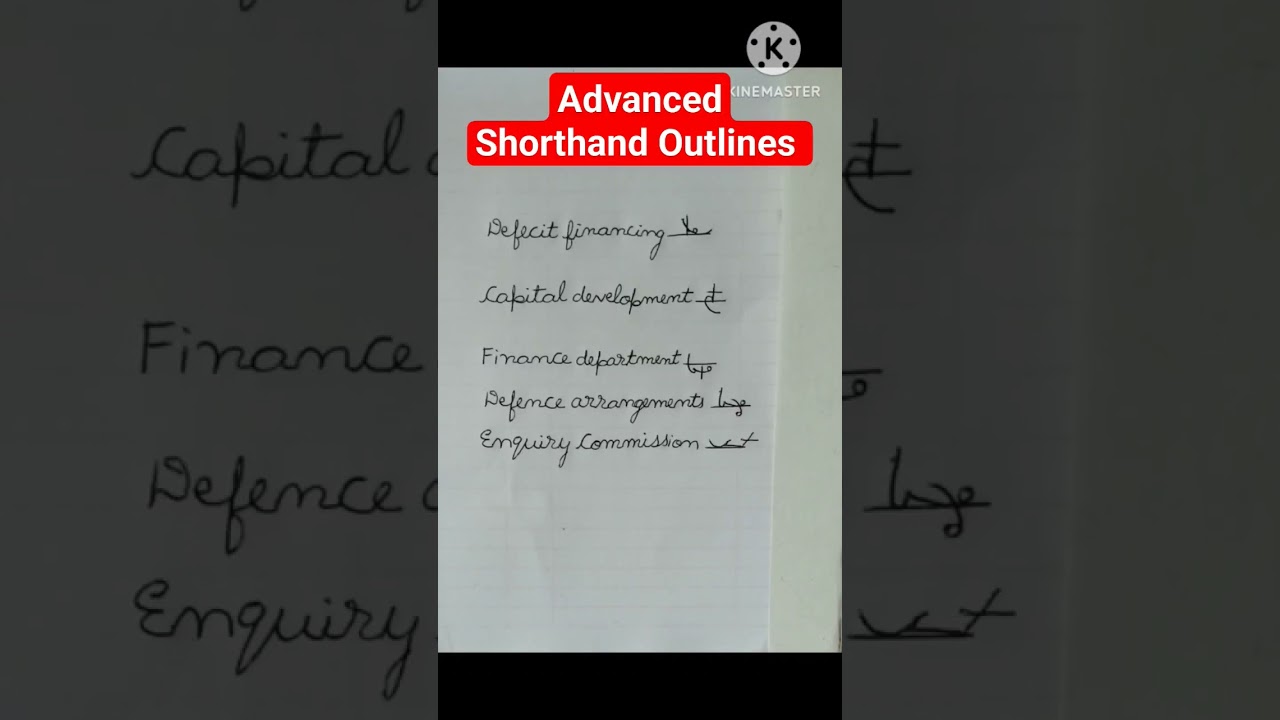 KINEMASTER
Advanced
Shorthand Outlines
Defecit financing
Capital development
Finance department
Defence arrangements
Enquiry Commission